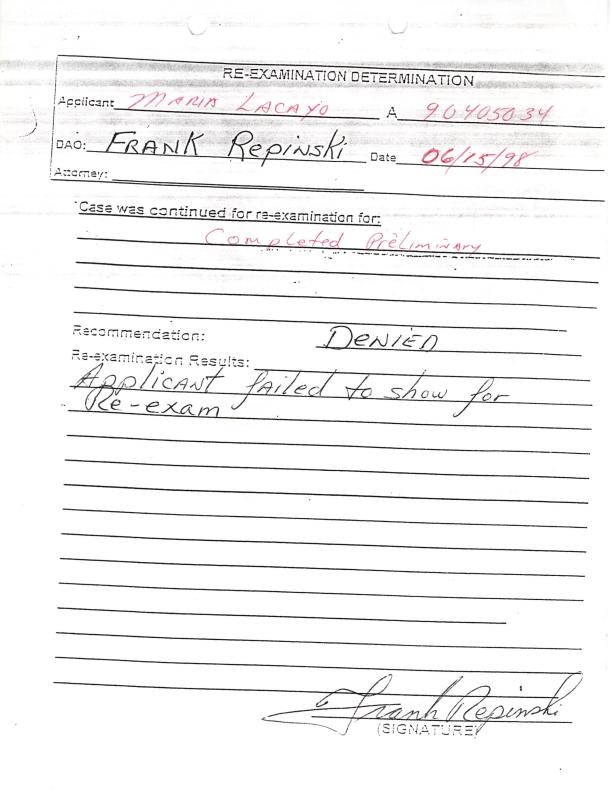 RE-EXAMINATION DETERMINATION
Applicant MARIA LACAYO A 90405034
DAO: FRANK Repinski Date 06/15/98
Attorney:
Case was continued for re-examination for:
Completed Preliminary
Recommendation: DENIED
Re-examination Results:
Applicant failed to show for
Re-exam
Frank Repinski
(SIGNATURE)